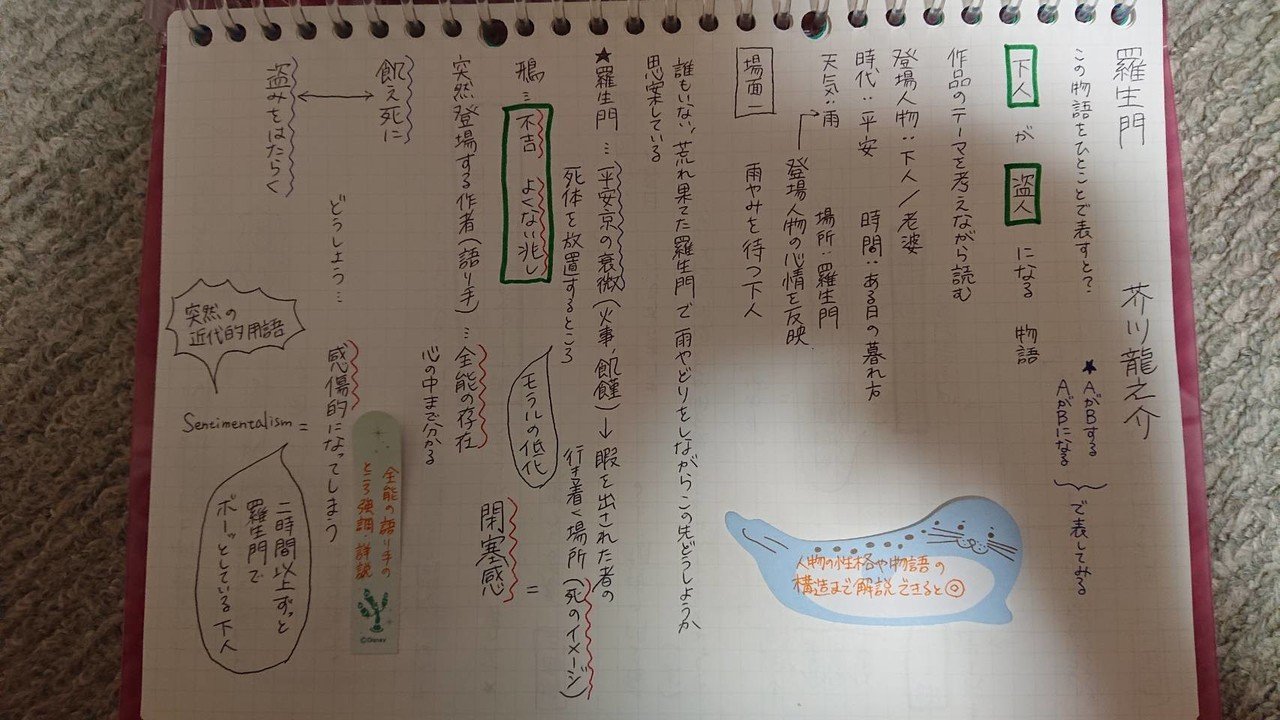 羅生門
芥川龍之介
この物語をひとことで表すと?
★AがBする
AがBになる
で表してみる
下人が盗人になる 物語
作品のテーマを考えながら読む
登場人物:下人/老婆
時代:平安 時間:ある日の暮れ方
天気:雨 場所:羅生門
登場人物の心情を反映
人物の性格や物語の
構造まで解説できると◎
場面一 雨やみを待つ下人
誰もいない、荒れ果てた羅生門で雨やどりをしながらこの先どうしようか
思案している
★羅生門…平安京の衰微(火事・飢饉)→暇を出された者の
死体を放置するところ 行き着く場所(死のイメージ)
鴉…不吉 よくない兆し
モラルの低化
=
閉塞感
突然登場する作者(語り手)…全能の存在
心の中まで分かる
全能の語り手の
ところ強調・詳説
©Disney
飢え死に
盗みをはたらく
どうしよう… 感傷的になってしまう
突然の
近代的用語
Sentimentalism =
二時間以上ずっと
羅生門で
ボーッとしている下人